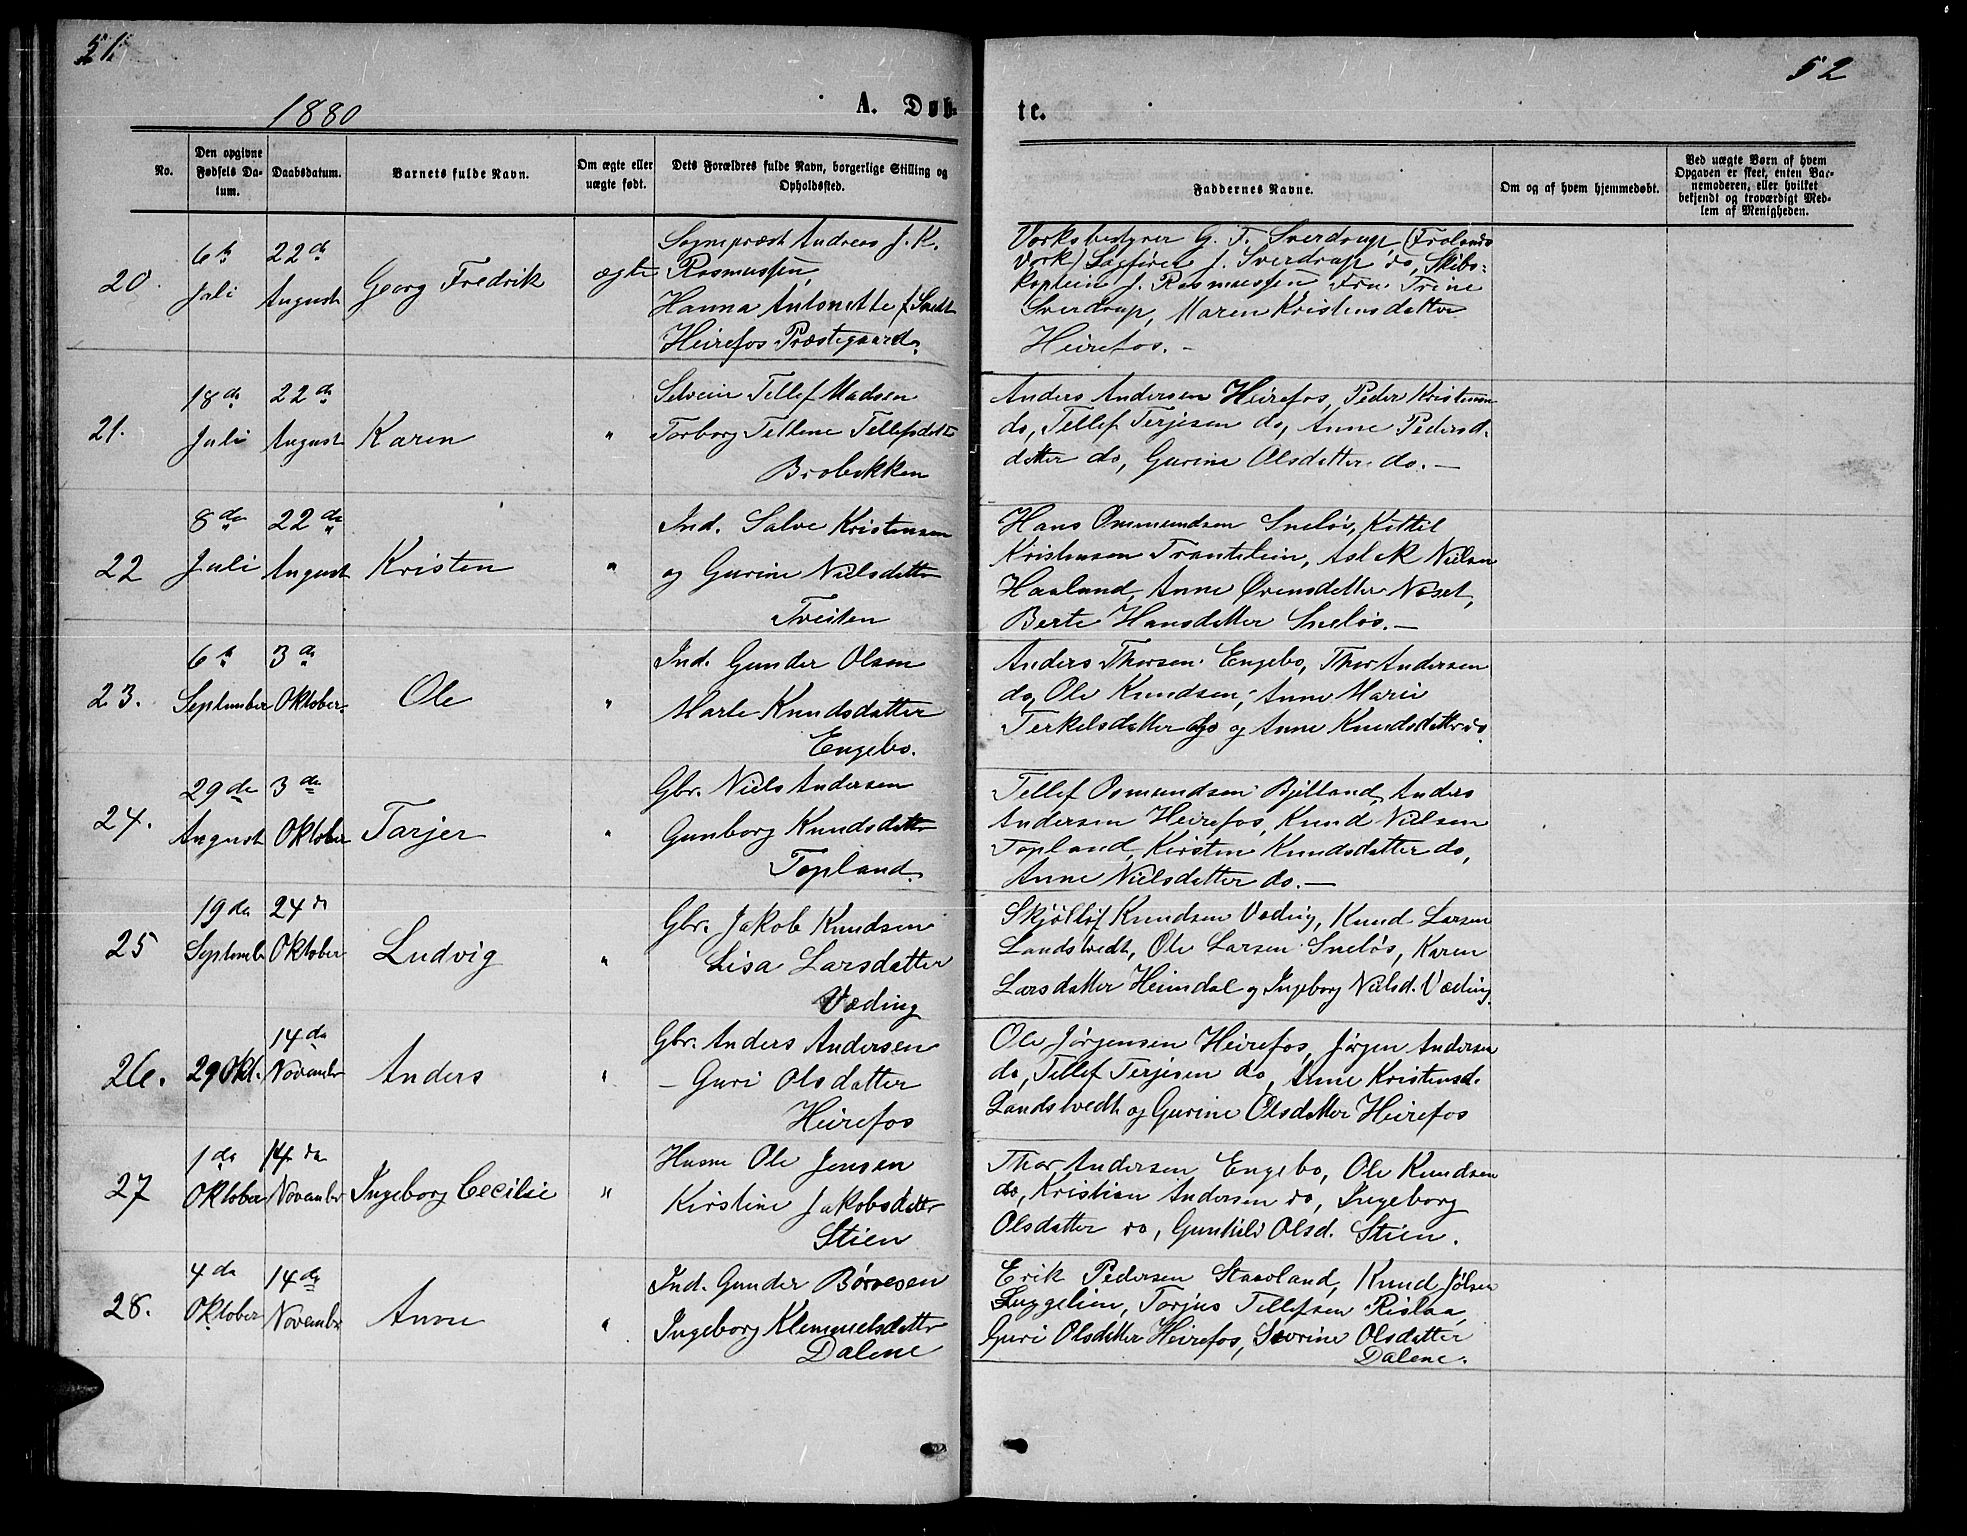 51
52
1880
A. Døb-
te.
No.
Den opgivne Fødsels Da-tum.
Daabsdatum.
Barnets fulde Navn.
Om ægte eller uægte født.
Dets Forældres fulde Navn, borgerlige Stilling og Opholdssted.
Faddernes Navne.
Om og af hvem hjemmedøbt.
Ved uægte Børn af hvem Opgaven er skeet, enten Bar-nemoderen, eller hvilket bekjendt og troværdigt Med-lem af Menigheden.
20.
6te Juli
22de August
Georg Fredrik
ægte
Sognepræst Andreas J. K.
Rasmussen,
Hanna Antonette f. Smidt
Heirefos Præstegaard.
Værksbestyrer G. F. Sverdrup (Frolands
Værk) Sagfører J. Sverdrup do, Skibs-
kaptein J. Rasmussen Fru Trine
Sverdrup, Maren Kristensdatter
Heirefos. -
21.
18de Juli
22de August
Karen
"
Selveier Tellef Madsen
Torborg Tellene Tellefsdatter
Brobekken
Anders Andersen Heirefos, Peder Kristensen
do, Tellef Terjesen do, Anne Pedersd.
datter do, Gurine Olsdatter do. -
22
8de Juli
22de August
Kristen
"
Ind. Salve Kristensen
og Gurine Nielsdatter
Tveiten
Hans Ommundsen Sneløs, Kittil
Kristensen Trantelein, Aslak Nielsen
Haaland, Anne Øvensdatter Næset,
Berte Hansdatter Sneløs. -
23.
6te September
3de Oktober
Ole
"
Ind. Gunder Olsen
Marte Knudsdatter
Engebo.
Anders Thorsen Engebo, Thor Andersen
do, Ole Knudsen, Anne Marie
Terkelsdatter do og Anne Knudsdatter do
24.
29de August
3de Oktober
Tarjer
"
Gbr. Niels Andersen
Gunborg Knudsdatter
Topland.
Tellef Osmundsen Bjelland, Anders
Andersen Heirefos, Knud Nielsen
Topland, Kirsten Knudsdatter do,
Anne Nielsdatter do. -
25
19de September
24de Oktober
Ludvig
"
Gbr. Jakob Knudsen
Lisa Larsdatter
Væding
Skjølløf Knudsen Væding, Knud Larsen
Landstvedt, Ole Larsen Sneløs, Karen
Larsdatter Heimdal og Ingeborg Nielsd. Væding.
26.
29 Okt.
14de November
Anders
"
Gbr. Anders Andersen
- Guri Olsdatter
Heirefos
Ole Jørgensen Heirefos, Jørgen Andersen
do, Tellef Terjesen do, Anne Kristensd.
Landstvedt og Gurine Olsdatter Heirefos
27
1de Oktober
14de November
Ingeborg Cecilie
"
Husm Ole Jensen
Kirstine Jakobsdatter
Stien
Thor Andersen Engebo, Ole Knudsen
do, Kristian Andersen do, Ingeborg
Olsdatter do, Gunhild Olsd. Stien.
28.
4de Oktober
14de November
Anne
"
Ind. Gunder Børresen
Ingeborg Klemmelsdatter
Dalene
Erik Pedersen Staavland, Knud Jølsen
Luggelien, Torjus Tellefsen Rislaa,
Guri Olsdatter Heirefos, Severine Olsdatter
Dalene.